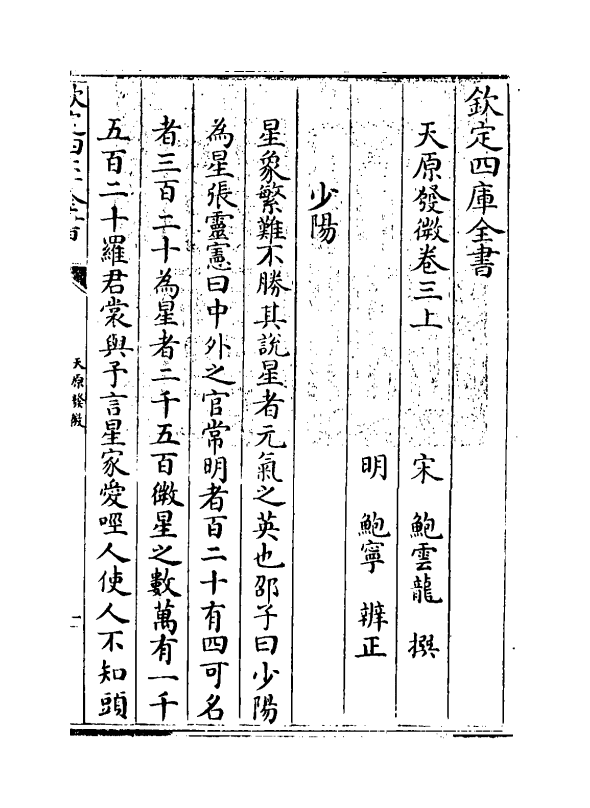 欽定四庫全書
天原發微卷三上
宋　鮑雲龍　撰
明　鮑寧　辨正
少陽
星象繁難不勝其說星者元氣之英也邵子曰少陽
為星張靈憲曰中外之官常明者百二十有四可名
者三百二十為星者二千五百微星之數萬有一千
五百二十羅君裳與予言星家愛啞人使人不知頭
欽定四庫全書
天原發微
一